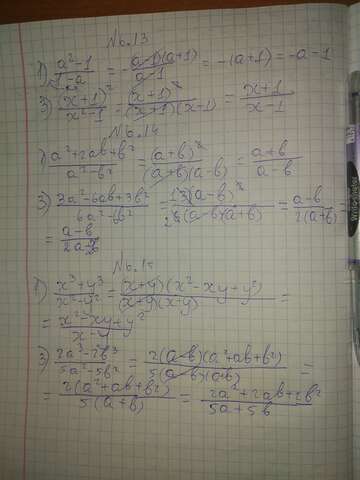 №6.13
1) a²-1/1-a = -(a-1)(a+1)/a-1 = -(a+1) = -a-1
3) (x+1)²/x²-1 = (x+1)²/(x+1)(x-1) = x+1/x-1
№6.14
1) a²+2ab+b²/a²-b² = (a+b)²/(a+b)(a-b) = a+b/a-b
3) 3a²-6ab+3b²/6a²-6b² = 3(a-b)²/6(a-b)(a+b) = a-b/2(a+b) =
= a-b/2a+2b
№6.15
1) x³+y³/x²-y² = (x+y)(x²-xy+y²)/(x+y)(x-y) =
= x²-xy+y²/x-y
3) 2a³-2b³/5a²-5b² = 2(a-b)(a²+ab+b²)/5(a-b)(a+b) =
= 2(a²+ab+b²)/5(a+b) = 2a²+2ab+2b²/5a+5b